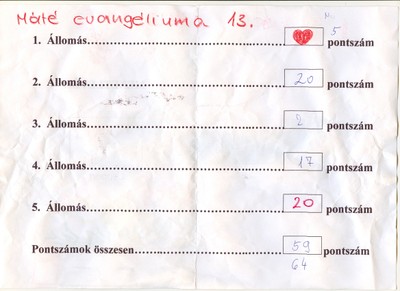 Máté evangéliuma 13.
1. Állomás..........................................................pontszám 5
2. Állomás..........................................................20 pontszám
3. Állomás..........................................................2 pontszám
4. Állomás..........................................................17 pontszám
5. Állomás..........................................................20 pontszám
Pontszámok összesen..........................................59 pontszám
64